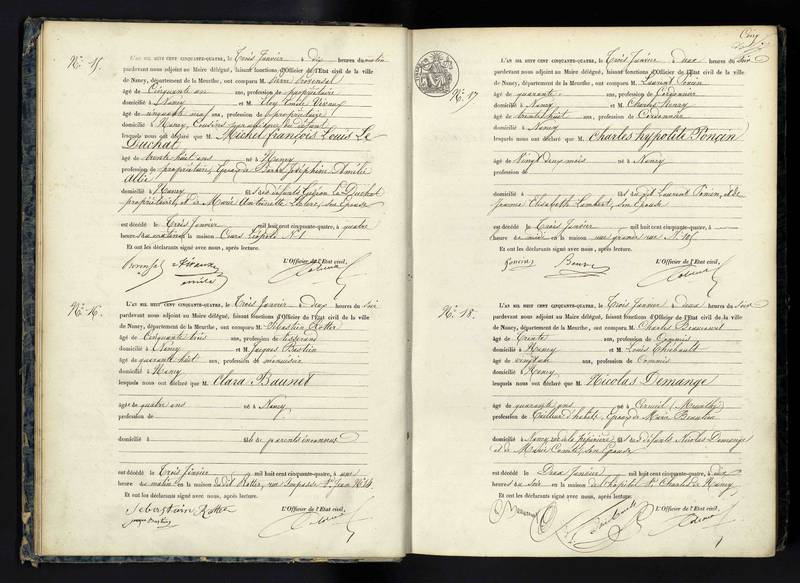 N.º 15
L'AN MIL HUIT CENT CINQUANTE-QUATRE, le Trois Janvier à dix heures du matin
pardevant nous adjoint au Maire délégué, faisant fonctions d'Officier de l'Etat civil de la ville
de Nancy, département de la Meurthe, ont comparu M. Pierre Provensal
âgé de Cinquante ans, profession de propriétaire
domicilié à Nancy et M. Eloy Emile
âgé de cinquante neuf ans, profession de propriétaire
domicilié à Nancy, du défunt
lesquels nous ont déclaré que M. Michel françois Louis Le
Duchat
âgé de trente huit ans né à Nancy
profession de propriétaire, Epoux de Joséphine Amélie
domicilié à Nancy fils des défunts Le Duchat
propriétaire, et de Marie Antoinette son Epouse
est décédé le Trois Janvier mil huit cent cinquante-quatre, à quatre
heures du matin en la maison Cours Léopold N.º 1
Et ont les déclarants signé avec nous, après lecture.
L'Officier de l'Etat civil,
Provensal
N.º 16.
L'AN MIL HUIT CENT CINQUANTE-QUATRE, le Trois Janvier à deux heures du soir
pardevant nous adjoint au Maire délégué, faisant fonctions d'Officier de l'Etat civil de la ville
de Nancy, département de la Meurthe, ont comparu M. Sébastien Rotter
âgé de Cinquante trois ans, profession de tisserand
domicilié à Nancy et M. Jacques Bastien
âgé de quarante huit ans, profession de menuisier
domicilié à Nancy
lesquels nous ont déclaré que M. Clara Baunet
âgée de quatre ans née à Nancy
profession de
domicilié à fille de parents inconnus
est décédé le Trois Janvier mil huit cent cinquante-quatre, à une
heure du matin en la maison dudit Rotter, rue Impasse St. Jean N.º 14
Et ont les déclarants signé avec nous, après lecture.
L'Officier de l'Etat civil,
Sebastien Rotter
Cinq
N.º 17
L'AN MIL HUIT CENT CINQUANTE-QUATRE, le Trois Janvier à deux heures du soir
pardevant nous adjoint au Maire délégué, faisant fonctions d'Officier de l'Etat civil de la ville
de Nancy, département de la Meurthe, ont comparu M. Laurent Ponsin
âgé de quarante ans, profession de Cordonnier
domicilié à Nancy et M. Charles
âgé de trente huit ans, profession de Cordonnier
domicilié à Nancy
lesquels nous ont déclaré que M. Charles hypolite Ponçin
âgé de Vingt deux mois né à Nancy
profession de
domicilié à fils dudit Laurent Ponsin, et de
Jeanne Elisabeth Lambert, son Epouse
est décédé le Trois Janvier mil huit cent cinquante-quatre, à
heure de midi en la maison rue grande rue N.º
Et ont les déclarants signé avec nous, après lecture.
L'Officier de l'Etat civil,
N.º 18.
L'AN MIL HUIT CENT CINQUANTE-QUATRE, le Trois Janvier à deux heures du soir
pardevant nous adjoint au Maire délégué, faisant fonctions d'Officier de l'Etat civil de la ville
de Nancy, département de la Meurthe, ont comparu M. Charles
âgé de trente ans, profession de Commis
domicilié à Nancy et M. Louis Thiébault
âgé de ans, profession de Commis
domicilié à Nancy
lesquels nous ont déclaré que M. Nicolas Demange
âgé de quarante ans né à (Meurthe)
profession de Tailleur d'habits, Epoux de Marie
domicilié à Nancy rue de la pépinière, fils des défunts Nicolas Demange
et de Marie son Epouse
est décédé le Deux Janvier mil huit cent cinquante-quatre, à dix
heures du soir en la maison de l'hôpital St. Charles de Nancy
Et ont les déclarants signé avec nous, après lecture.
L'Officier de l'Etat civil,